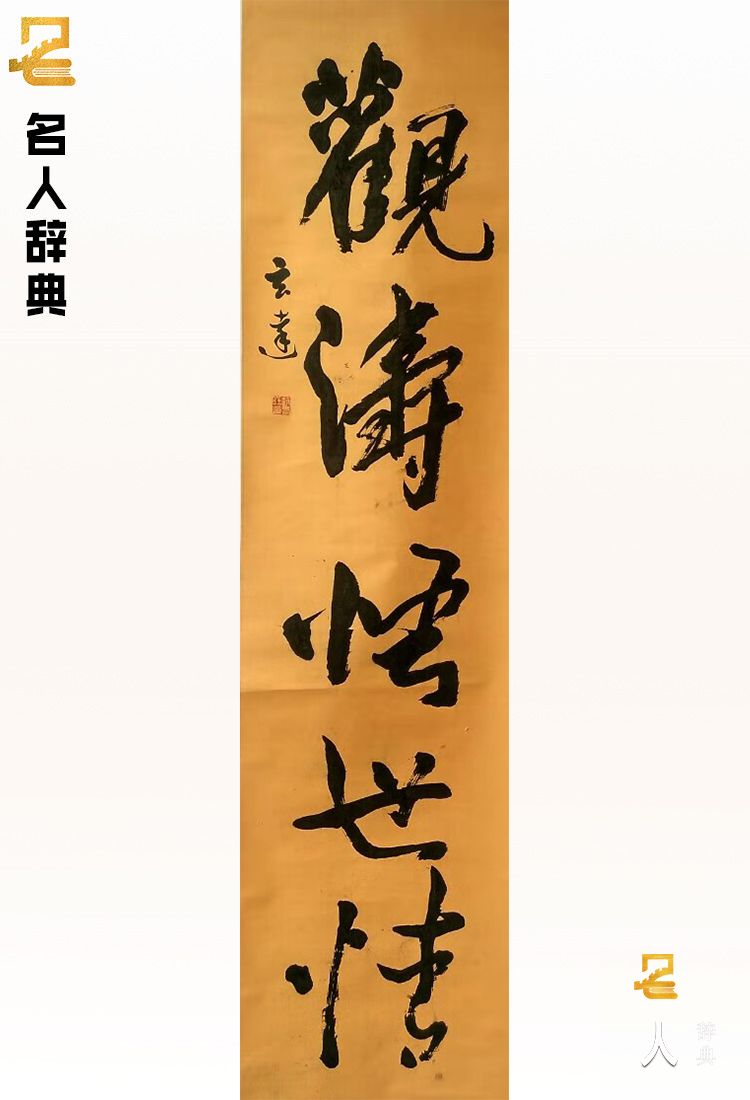 名人辞典
觀濤悟世情
玄達
人
辞典